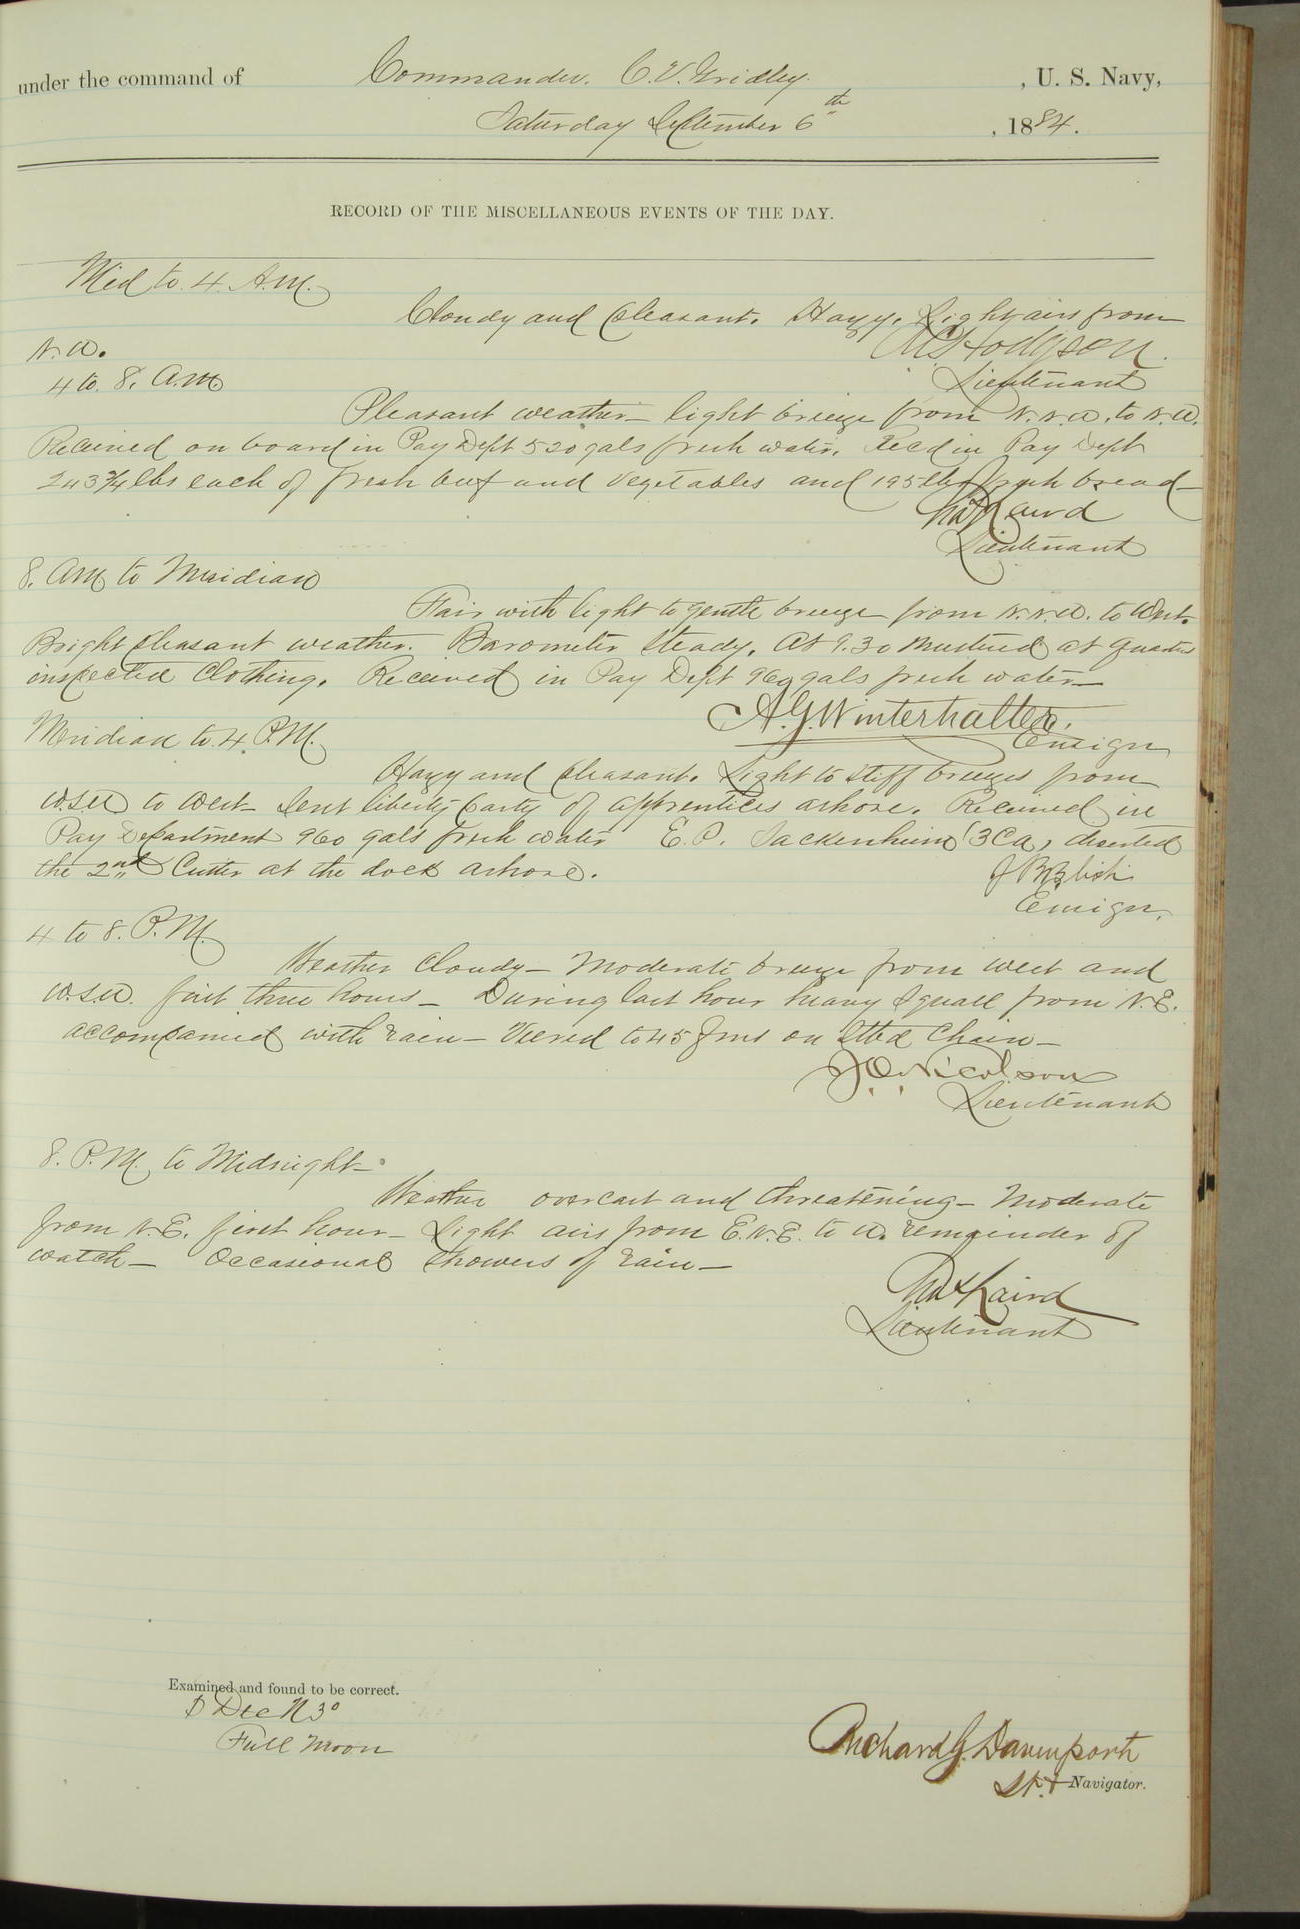 under the command of Commander. C. V. Gridley. , U. S. Navy,
Saturday September 6th , 1884.
RECORD OF THE MISCELLANEOUS EVENTS OF THE DAY.
Mid to 4 A.M.
Cloudy and pleasant. Hazy. Light airs from
N.W.
Hodgson
Lieutenant
4 to 8. A.M.
Pleasant weather — light breeze from N.N.W. to N.W.
Received on board in Pay Dept 520 gals fresh water. Recd in Pay Dept
243¾ lbs each of fresh beef and vegetables and 195 lbs fresh bread —
Chas Laird
Lieutenant
8. AM to Meridian
Fair with light to gentle breeze from N.N.W. to West.
Bright pleasant weather. Barometer steady. At 9.30 mustered at quarters
inspected clothing. Received in Pay Dept 960 gals fresh water —
A.G. Winterhalter.
Ensign
Meridian to 4 P.M.
Hazy and pleasant. Light to stiff breezes from
W.S.W. to West — Sent liberty party of apprentices ashore. Received in
Pay Department 960 gals fresh water E. P. Sackenheim (3Ca) deserted
the 2nd Cutter at the dock ashore.
J B Blish
Ensign.
4 to 8. P.M.
Weather cloudy — Moderate breeze from West and
W.S.W. first three hours — During last hour heavy squall from N.E.
accompanied with rain — Veered to 45 fms on Stbd chain —
J.O. Nicolson
Lieutenant
8. P.M. to Midnight —
Weather overcast and threatening — Moderate
from N.E. first hour — Light airs from E.N.E. to N. remainder of
watch — Occasional showers of rain —
Chas Laird
Lieutenant
Examined and found to be correct.
D Dec N 3°
Full Moon
Richard G. Davenport
Lt. & Navigator.